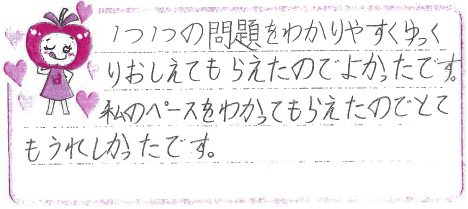 1つ1つの問題をわかりやすくゆっく
りおしえてもらえたのでよかったです。
私のペースをわかってもらえたのでとて
もうれしかったです。